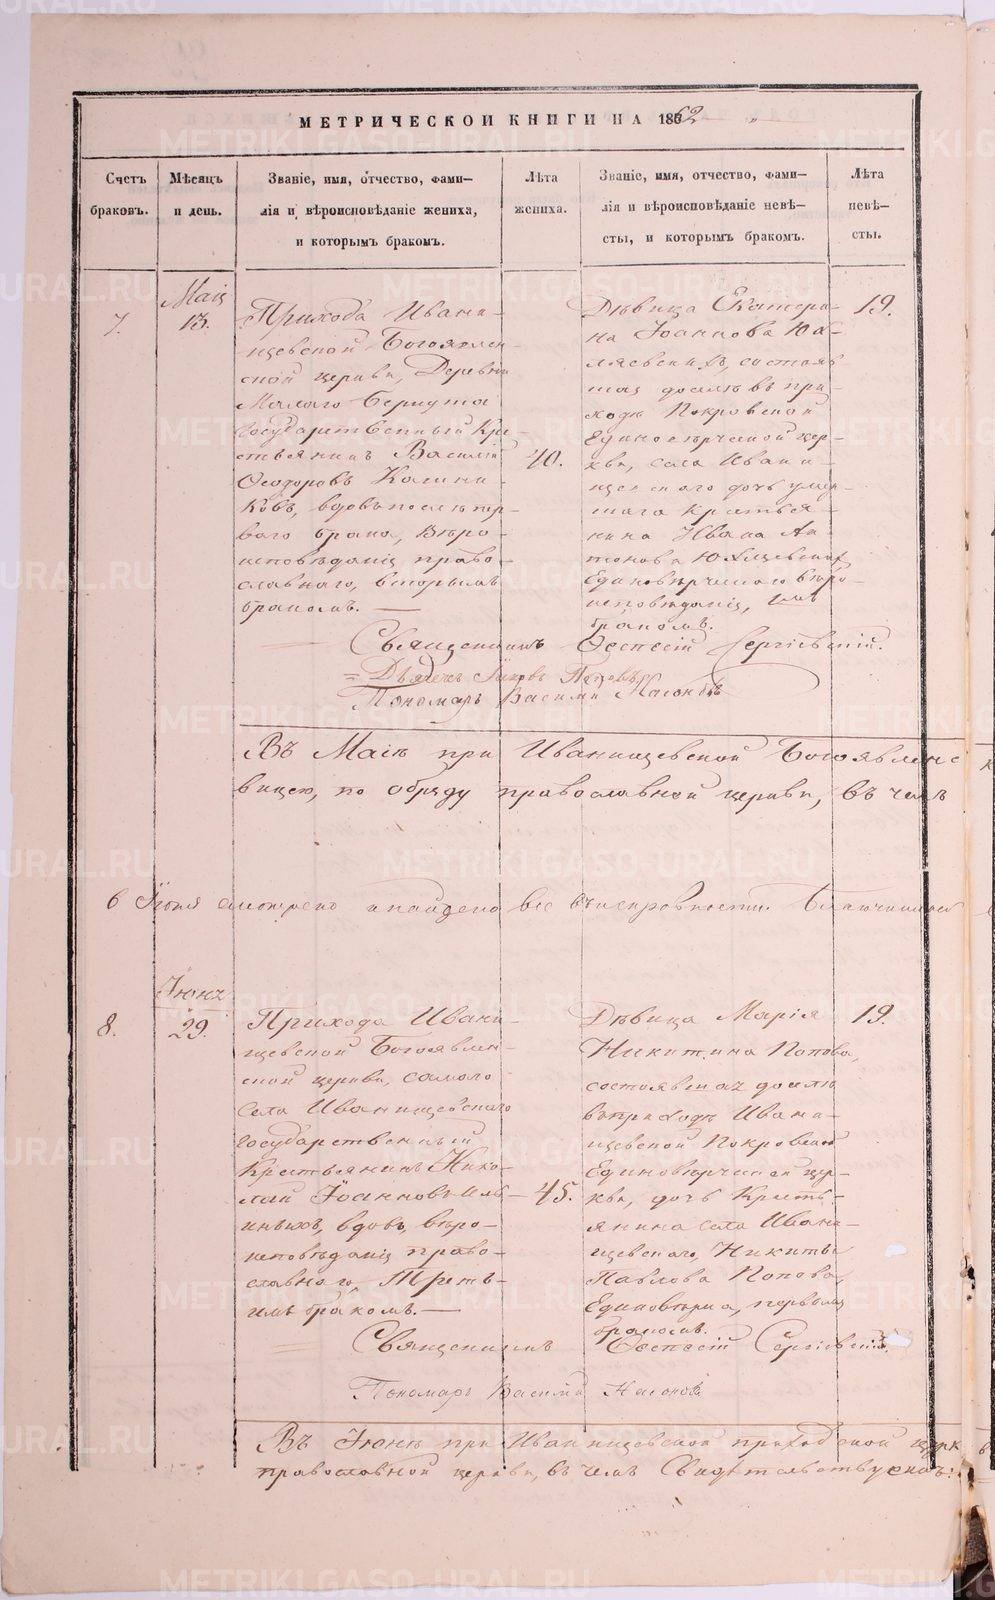 МЕТРИЧЕСКОИ КНИГИ НА 1862
Счетъ браковъ.
Мѣсяцъ и день.
Званіе, имя, отчество, фами-
лія и вѣроисповѣданіе жениха,
и которымъ бракомъ.
Лѣта жениха.
Званіе, имя, отчество, фами-
лія и вѣроисповѣданіе невѣ-
сты, и которымъ бракомъ.
Лѣта невѣ-
сты.
7.
Маія
13.
Прихода Ивани-
щевской Богоявлен-
ской церкви, Деревни
Малаго
Государственный Кре-
стьянинъ Василій
Ѳеодоровъ Калини-
ковъ, вдовъ послѣ пер-
ваго брака, Вѣро-
исповѣданія право-
славнаго, вторымъ
бракомъ. —
40.
Дѣвица Екатери-
на Іоаннова
состояв
шая доселѣ въ при-
ходѣ Покровской
Единовѣрческой цер-
кви, села Ивани-
щевскаго дочь умер-
шаго крестья-
нина Ивана Ан-
тонова
Единовѣрческаго вѣро-
исповѣданія, 1мъ
бракомъ.
19.
Священникъ Сергіевскій.
Дьячекъ Яковъ Поповъ
Пономарь Василій
Въ Маіѣ при Иванищевской Богоявленс
вицею, по обряду православной церкви, въ чемъ
6 Іюня смотрено и найдено все въ исправности. Благочинный
8.
Іюнь
29.
Прихода Ивани-
щевской Богоявлен-
ской церкви, самого
села Иванищевскаго
Государственный
Крестьянинъ Нико-
лай Іоанновъ Иль-
иныхъ, вдовъ, вѣро-
исповѣданія право-
славнаго, Треть-
имъ бракомъ. —
45.
Дѣвица Марія
Никитина Попова,
состоявшая доселѣ
въ приходѣ Ивани-
щевской Покровской
Единовѣрческой цер-
кви, дочь Кресть-
янина села Ивани-
щевскаго, Никиты
Павлова Попова,
Единовѣрца, первымъ
бракомъ.
19.
Священникъ Сергіевскій.
Пономарь Василій
Въ Іюнѣ при Иванищевской приходской церк
православной церкви, въ чемъ Свидѣтельствуемъ:
METRIKI.GASO-URAL.RU